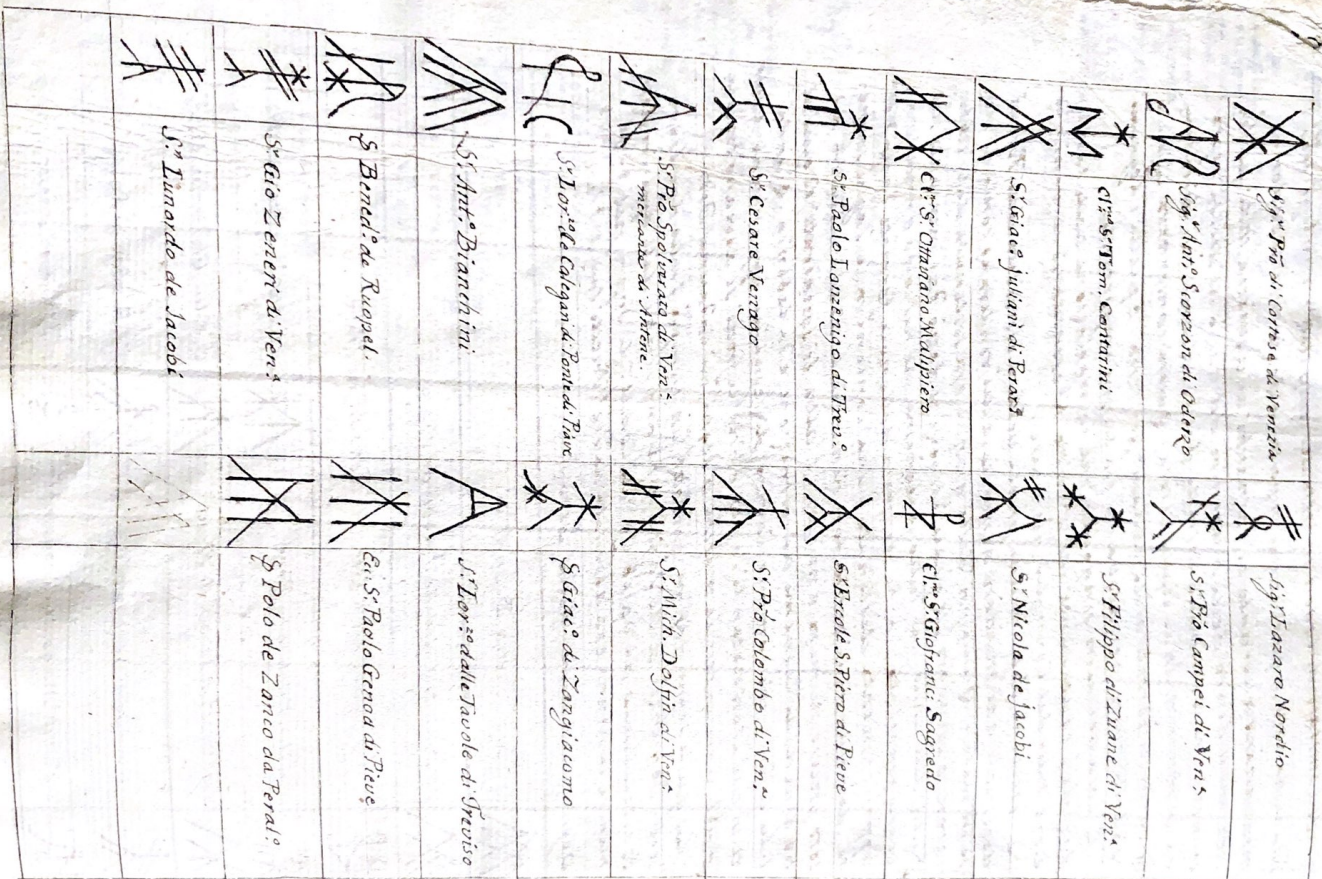 Sig.r Prõ di Cortese di Venezia
Sig.r Ant.o Scorzon di Oderzo
Cl.mo S.r Tom. Contarini
S.r Giac.o Juliani di Perar.o
Cl.mo S.r Ottaviano Malipiero
S.r Paolo Lanzenigo di Trev.o
S.r Cesare Venago
S.r Prõ Spolvarato di Ven.a
mercante di Antene.
S.r Lor.zo de Calegari di Ponte di Piave
S.r Ant.o Bianchini
S Bened.o de Ruopel.
S.r Gio Zeneri di Ven.a
S.r Lunardo de Jacobi
Sig.r Lazaro Nordio
S.r Prõ Campei di Ven.a
S.r Filippo di Zuane di Ven.a
S.r Nicola de Jacobi
Cl.mo S.r Giofranc: Sagredo
S.r Ercole S. Piero di Pieve
S.r Prõ Colombo di Ven.a
S.r Mich. Dolfin di Ven.a
S Giac.o di Zangiacomo
S.r Lor.zo dalle Tavole di Treviso
S.r Paolo Genoa di Pieve
S Polo de Zanco da Peral.o